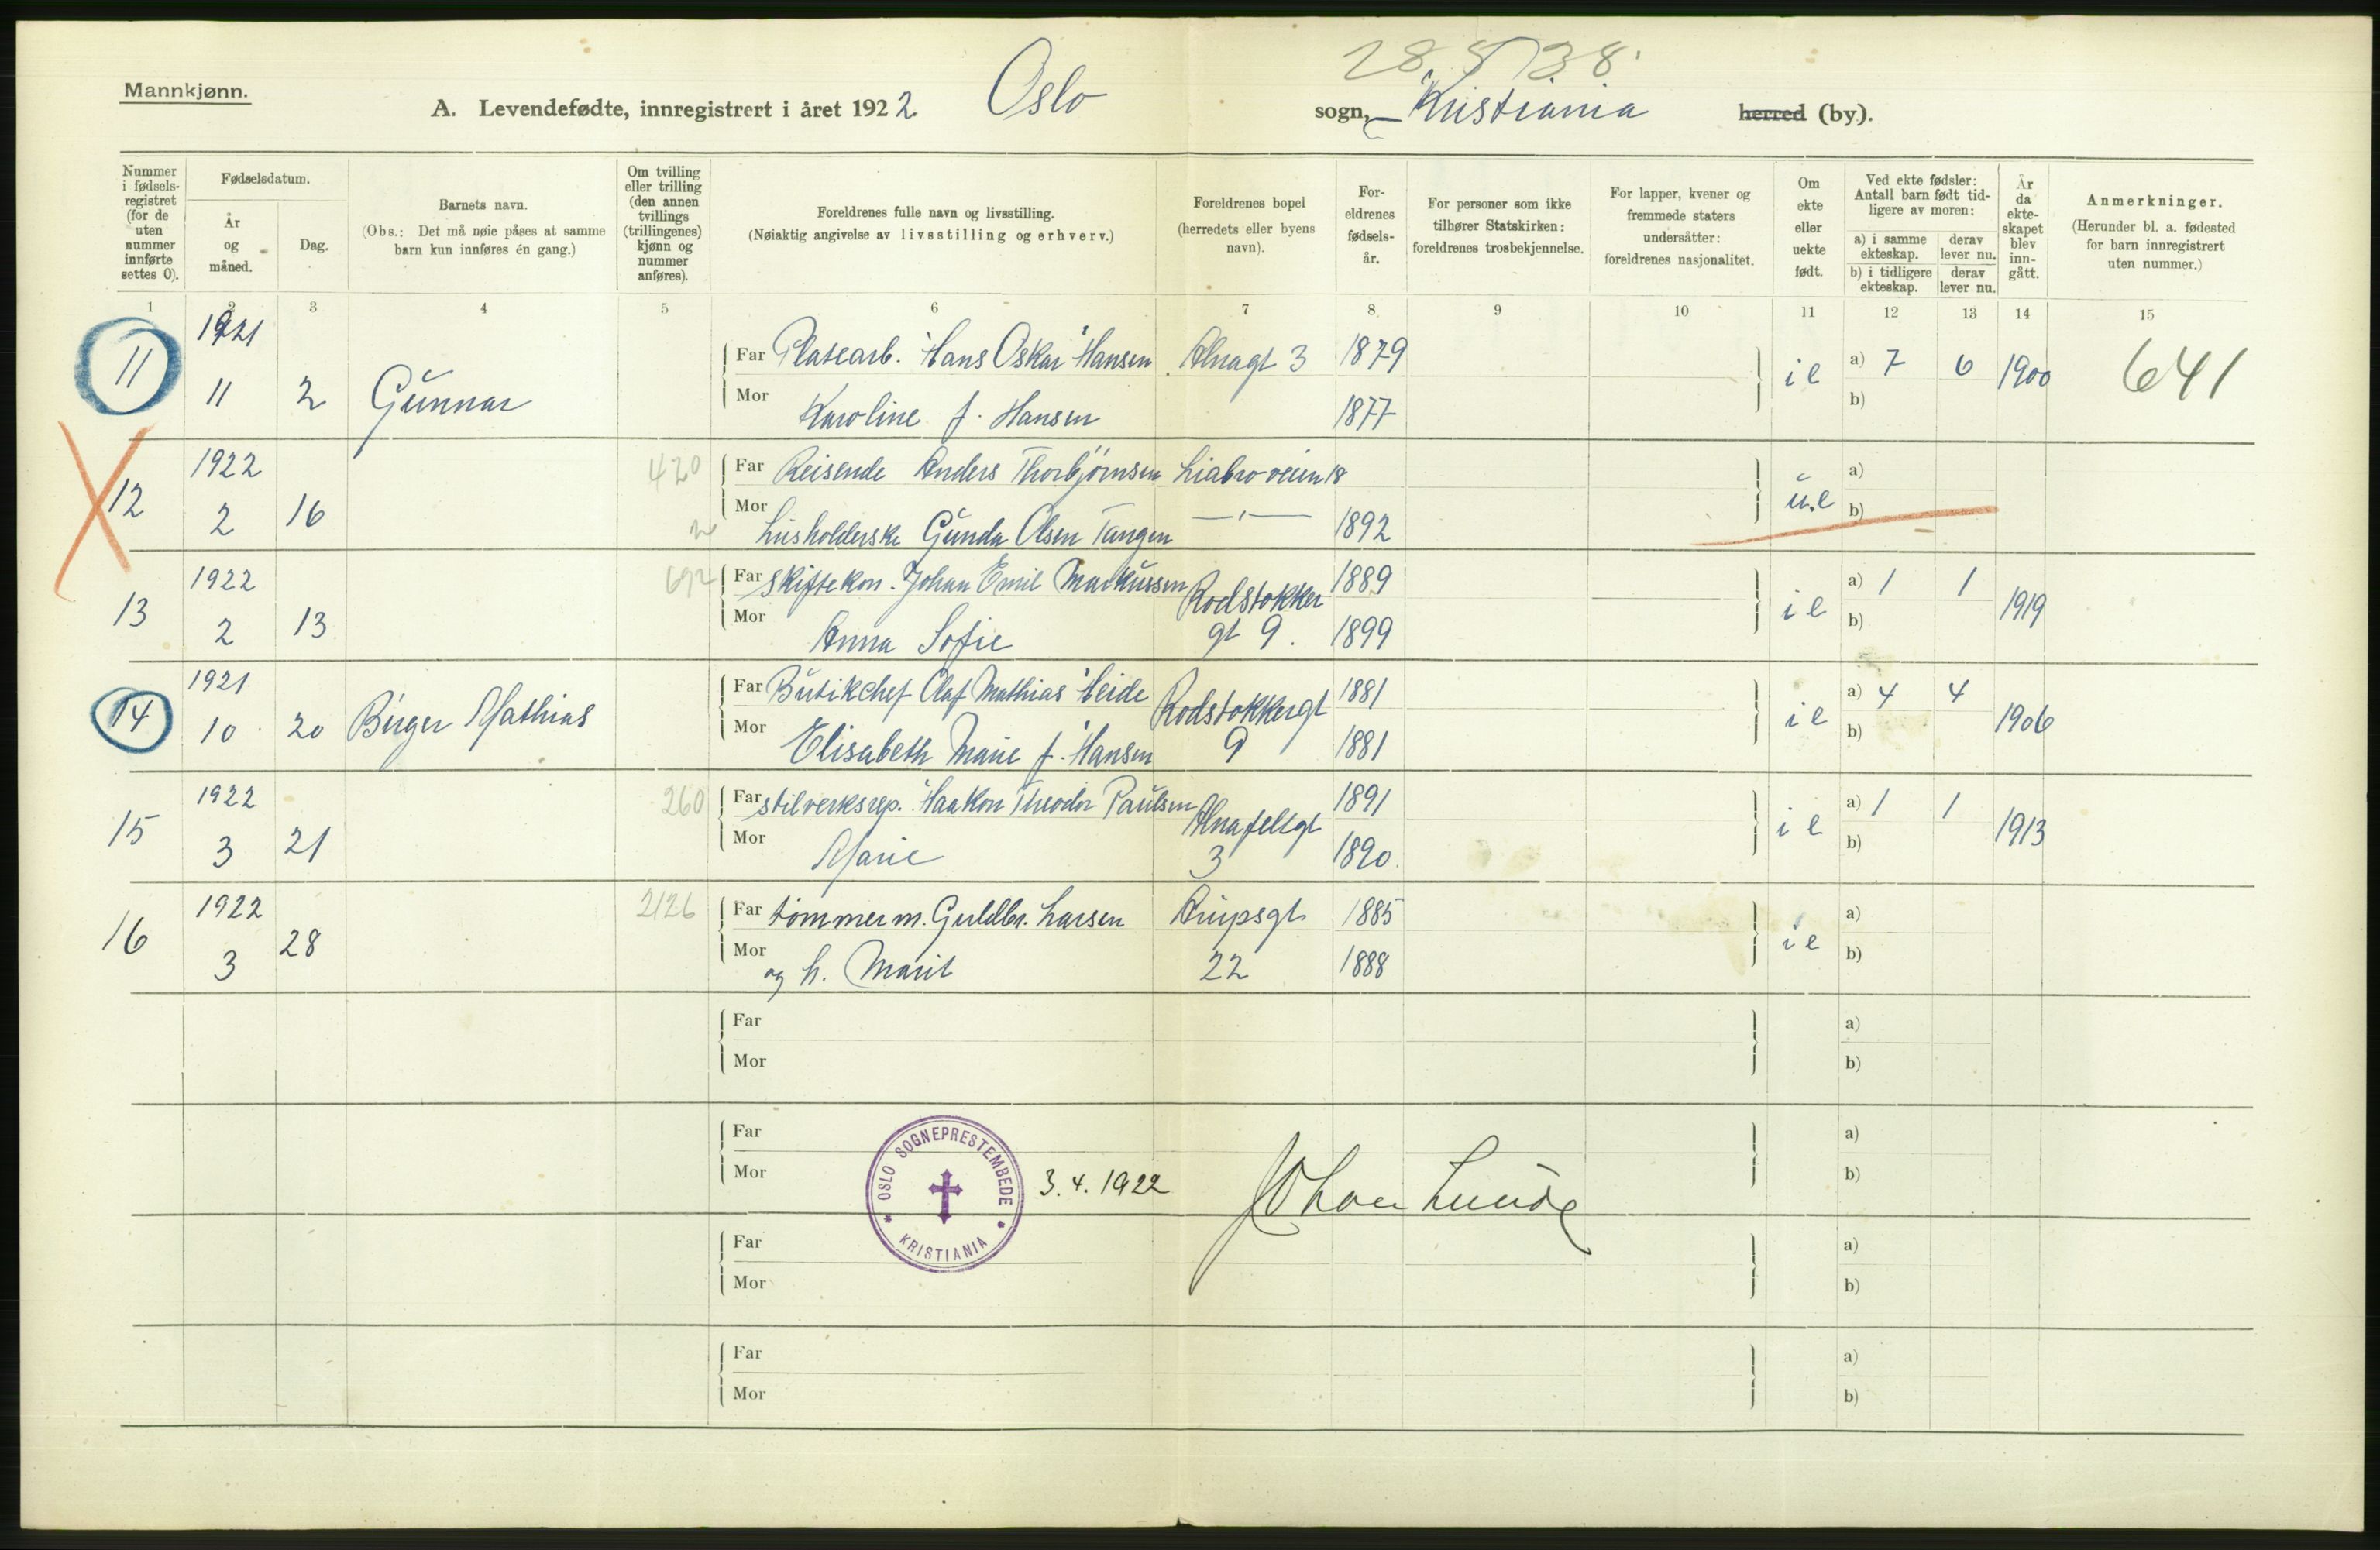 28.8/38.
Mannkjønn.
A. Levendefødte, innregistrert i året 1922. Oslo sogn, Kristiania herred (by).
Nummer i fødsels-registret (for de uten nummer innførte settes 0).
Fødselsdatum.
År og måned.
Dag.
Barnets navn.
(Obs.: Det må nøie påses at samme barn kun innføres én gang.)
Om tvilling eller trilling (den annen tvillings (trillingenes) kjønn og nummer anføres).
Foreldrenes fulle navn og livsstilling.
(Nøiaktig angivelse av livsstilling og erhverv.)
Foreldrenes bopel (herredets eller byens navn).
For-eldrenes fødsels-år.
For personer som ikke tilhører Statskirken: foreldrenes trosbekjennelse.
For lapper, kvener og fremmede staters undersåtter: foreldrenes nasjonalitet.
Om ekte eller uekte født.
Ved ekte fødsler: Antall barn født tid-ligere av moren:
a) i samme ekteskap.
derav lever nu.
b) i tidligere ekteskap.
derav lever nu.
År da ekte-skapet blev inn-gått.
Anmerkninger.
(Herunder bl. a. fødested for barn innregistrert uten nummer.)
1 2 3 4 5 6 7 8 9 10 11 12 13 14 15
1921
Far Platearb. Hans Oskar Hansen Alnagt 3 1879
11 11 2 Gunnar i e a) 7 6 1900 641
Mor Karoline f. Hansen 1877 b)
1922 420 Far Reisende Anders Thorbjørnsen Liabroveien 18 a)
12 2 16 u.e b)
Mor Husholderske Gunda Olsen Tangen —"— 1892
1922 692 Far Skiftekon. Johan Emil Markussen Rodstokker 1889 a) 1 1
13 2 13 i e 1919
Mor Anna Sofie gt 9. 1899 b)
1921 Far Butikchef Olaf Mathias Heide Rodstokkergt 1881 a) 4 4
14 10 20 Birger Mathias i e 1906
Mor Elisabeth Marie f. Hansen 9 1881 b)
1922 260 Far stilverksrep. Haakon Theodor Paulsen Alnafeltgt 1891 a) 1 1
15 3 21 i e 1913
Mor Marie 3 1890. b)
1922 2126 Far tømmerm. Guldbr. Larsen Arupsgt 1885 a)
16 3 28 i e
Mor og h. Marit 22 1888 b)
Far a)
Mor b)
Far a)
Mor b)
OSLO SOGNEPRESTEMBEDE
KRISTIANIA
3.4.1922 Johan Lunde
Far a)
Mor b)
Far a)
Mor b)